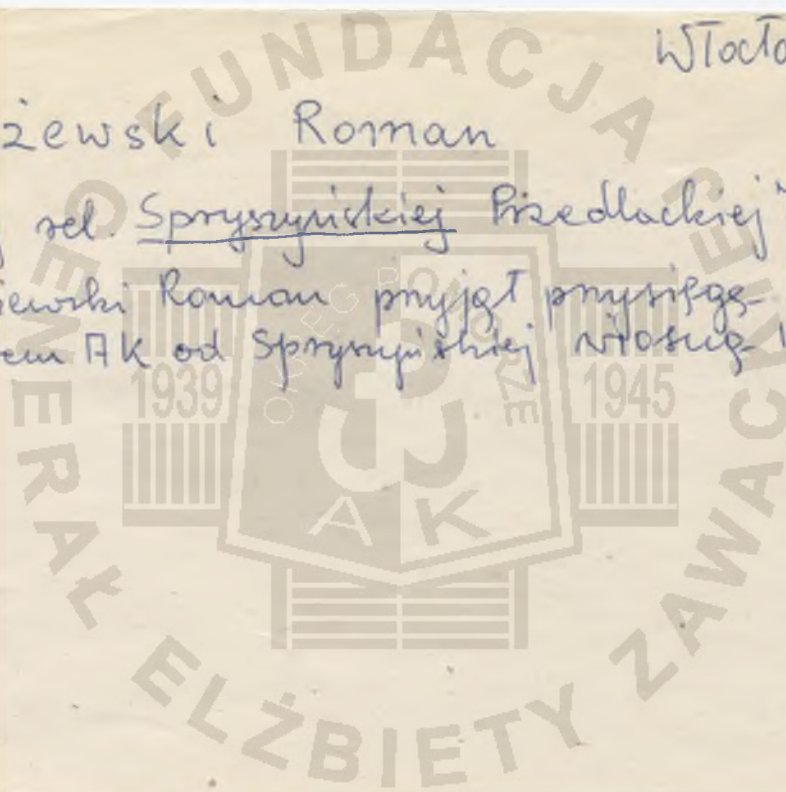 Włocło
żewski Roman
rel. Spryszyńskiej Przedlackiej
iewski Roman przyjął przysięgę
em AK od Spryszyńskiej wiosną
FUNDACJA
GENERAŁ ELŻBIETY ZAWACKIEJ
OKRĘG POMORZE
1939
1945
AK